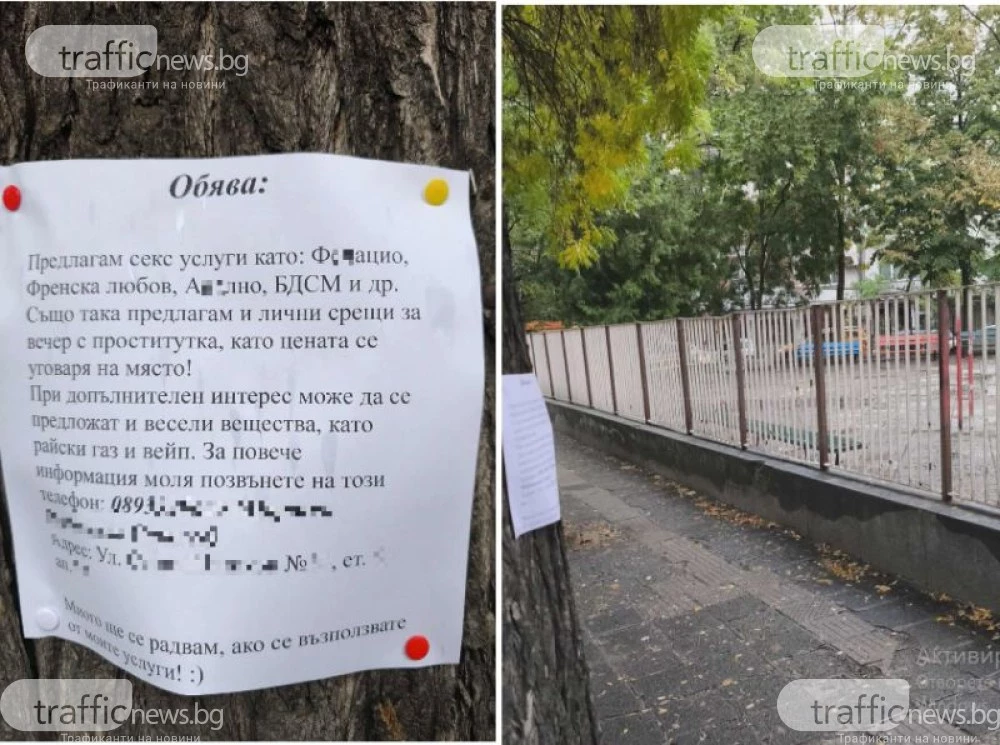 trafficnews.bg
Трафиканти на новини
trafficnews.bg
Трафиканти на новини
Обява:
Предлагам секс услуги като:
Френска любов, БДСМ и др.
Също така предлагам и лични срещи за
вечер с проститутка, като цената се
уговаря на място!
При допълнителен интерес може да се
предложат и весели вещества, като
райски газ и вейп. За повече
информация моля позвънете на този
телефон: 0893
Адрес: Ул. № , ет.
ап.
Много ще се радвам, ако се възползвате
от моите услуги! :)
trafficnews.bg
Трафиканти на новини
trafficnews.bg
Трафиканти на новини